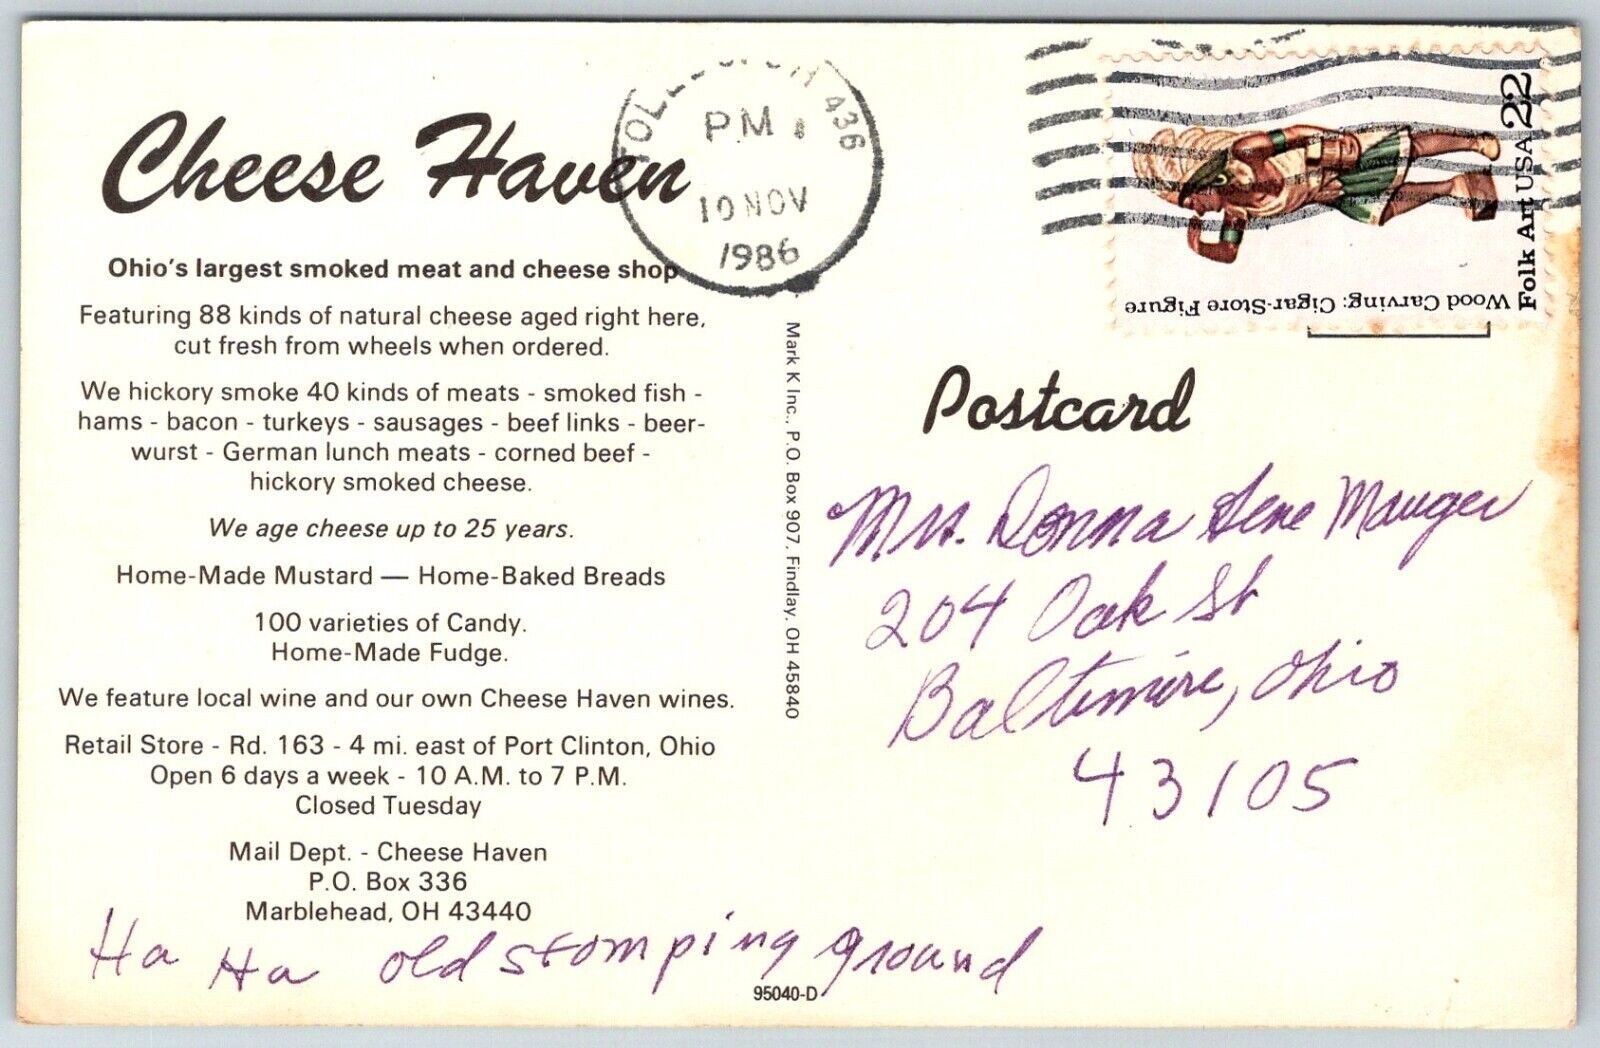 Cheese Haven
Ohio's largest smoked meat and cheese shop
Featuring 88 kinds of natural cheese aged right here,
cut fresh from wheels when ordered.
We hickory smoke 40 kinds of meats - smoked fish -
hams - bacon - turkeys - sausages - beef links - beer-
wurst - German lunch meats - corned beef -
hickory smoked cheese.
We age cheese up to 25 years.
Home-Made Mustard — Home-Baked Breads
100 varieties of Candy.
Home-Made Fudge.
We feature local wine and our own Cheese Haven wines.
Retail Store - Rd. 163 - 4 mi. east of Port Clinton, Ohio
Open 6 days a week - 10 A.M. to 7 P.M.
Closed Tuesday
Mail Dept. - Cheese Haven
P.O. Box 336
Marblehead, OH 43440
Ha Ha old stomping ground
95040-D
Mark K Inc., P.O. Box 907, Findlay, OH 45840
436
PM
10 NOV
1986
Folk Art USA 22
Wood Carving: Cigar-Store Figure
Postcard
Mrs. Donna Gene Mauger
204 Oak St
Baltimore, Ohio
43105